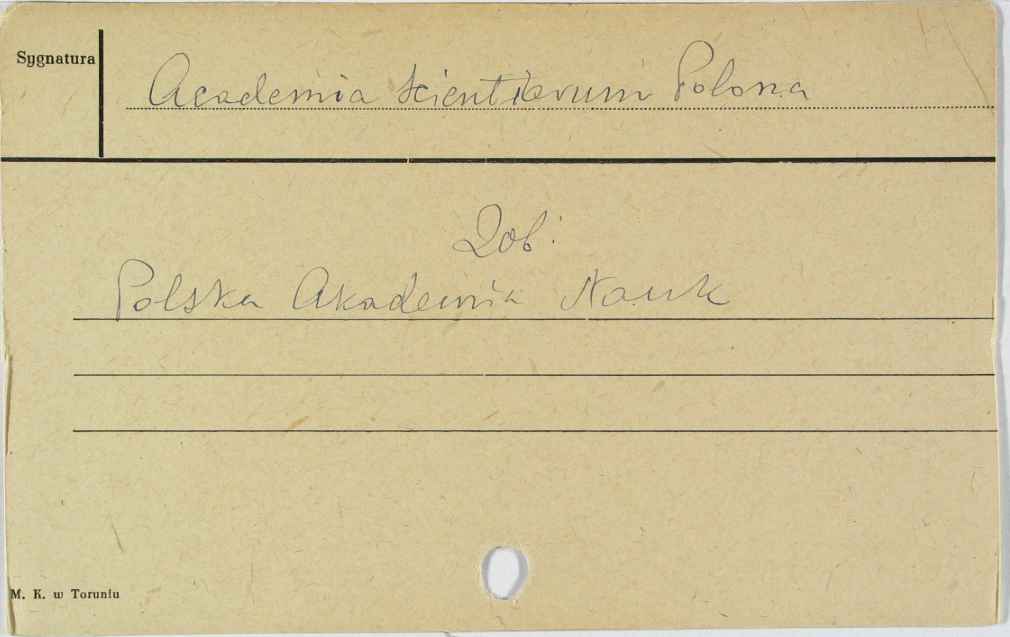 Sygnatura
Academia Scientiarum Polona
Zob.
Polska Akademia Nauk
M. K. w Toruniu